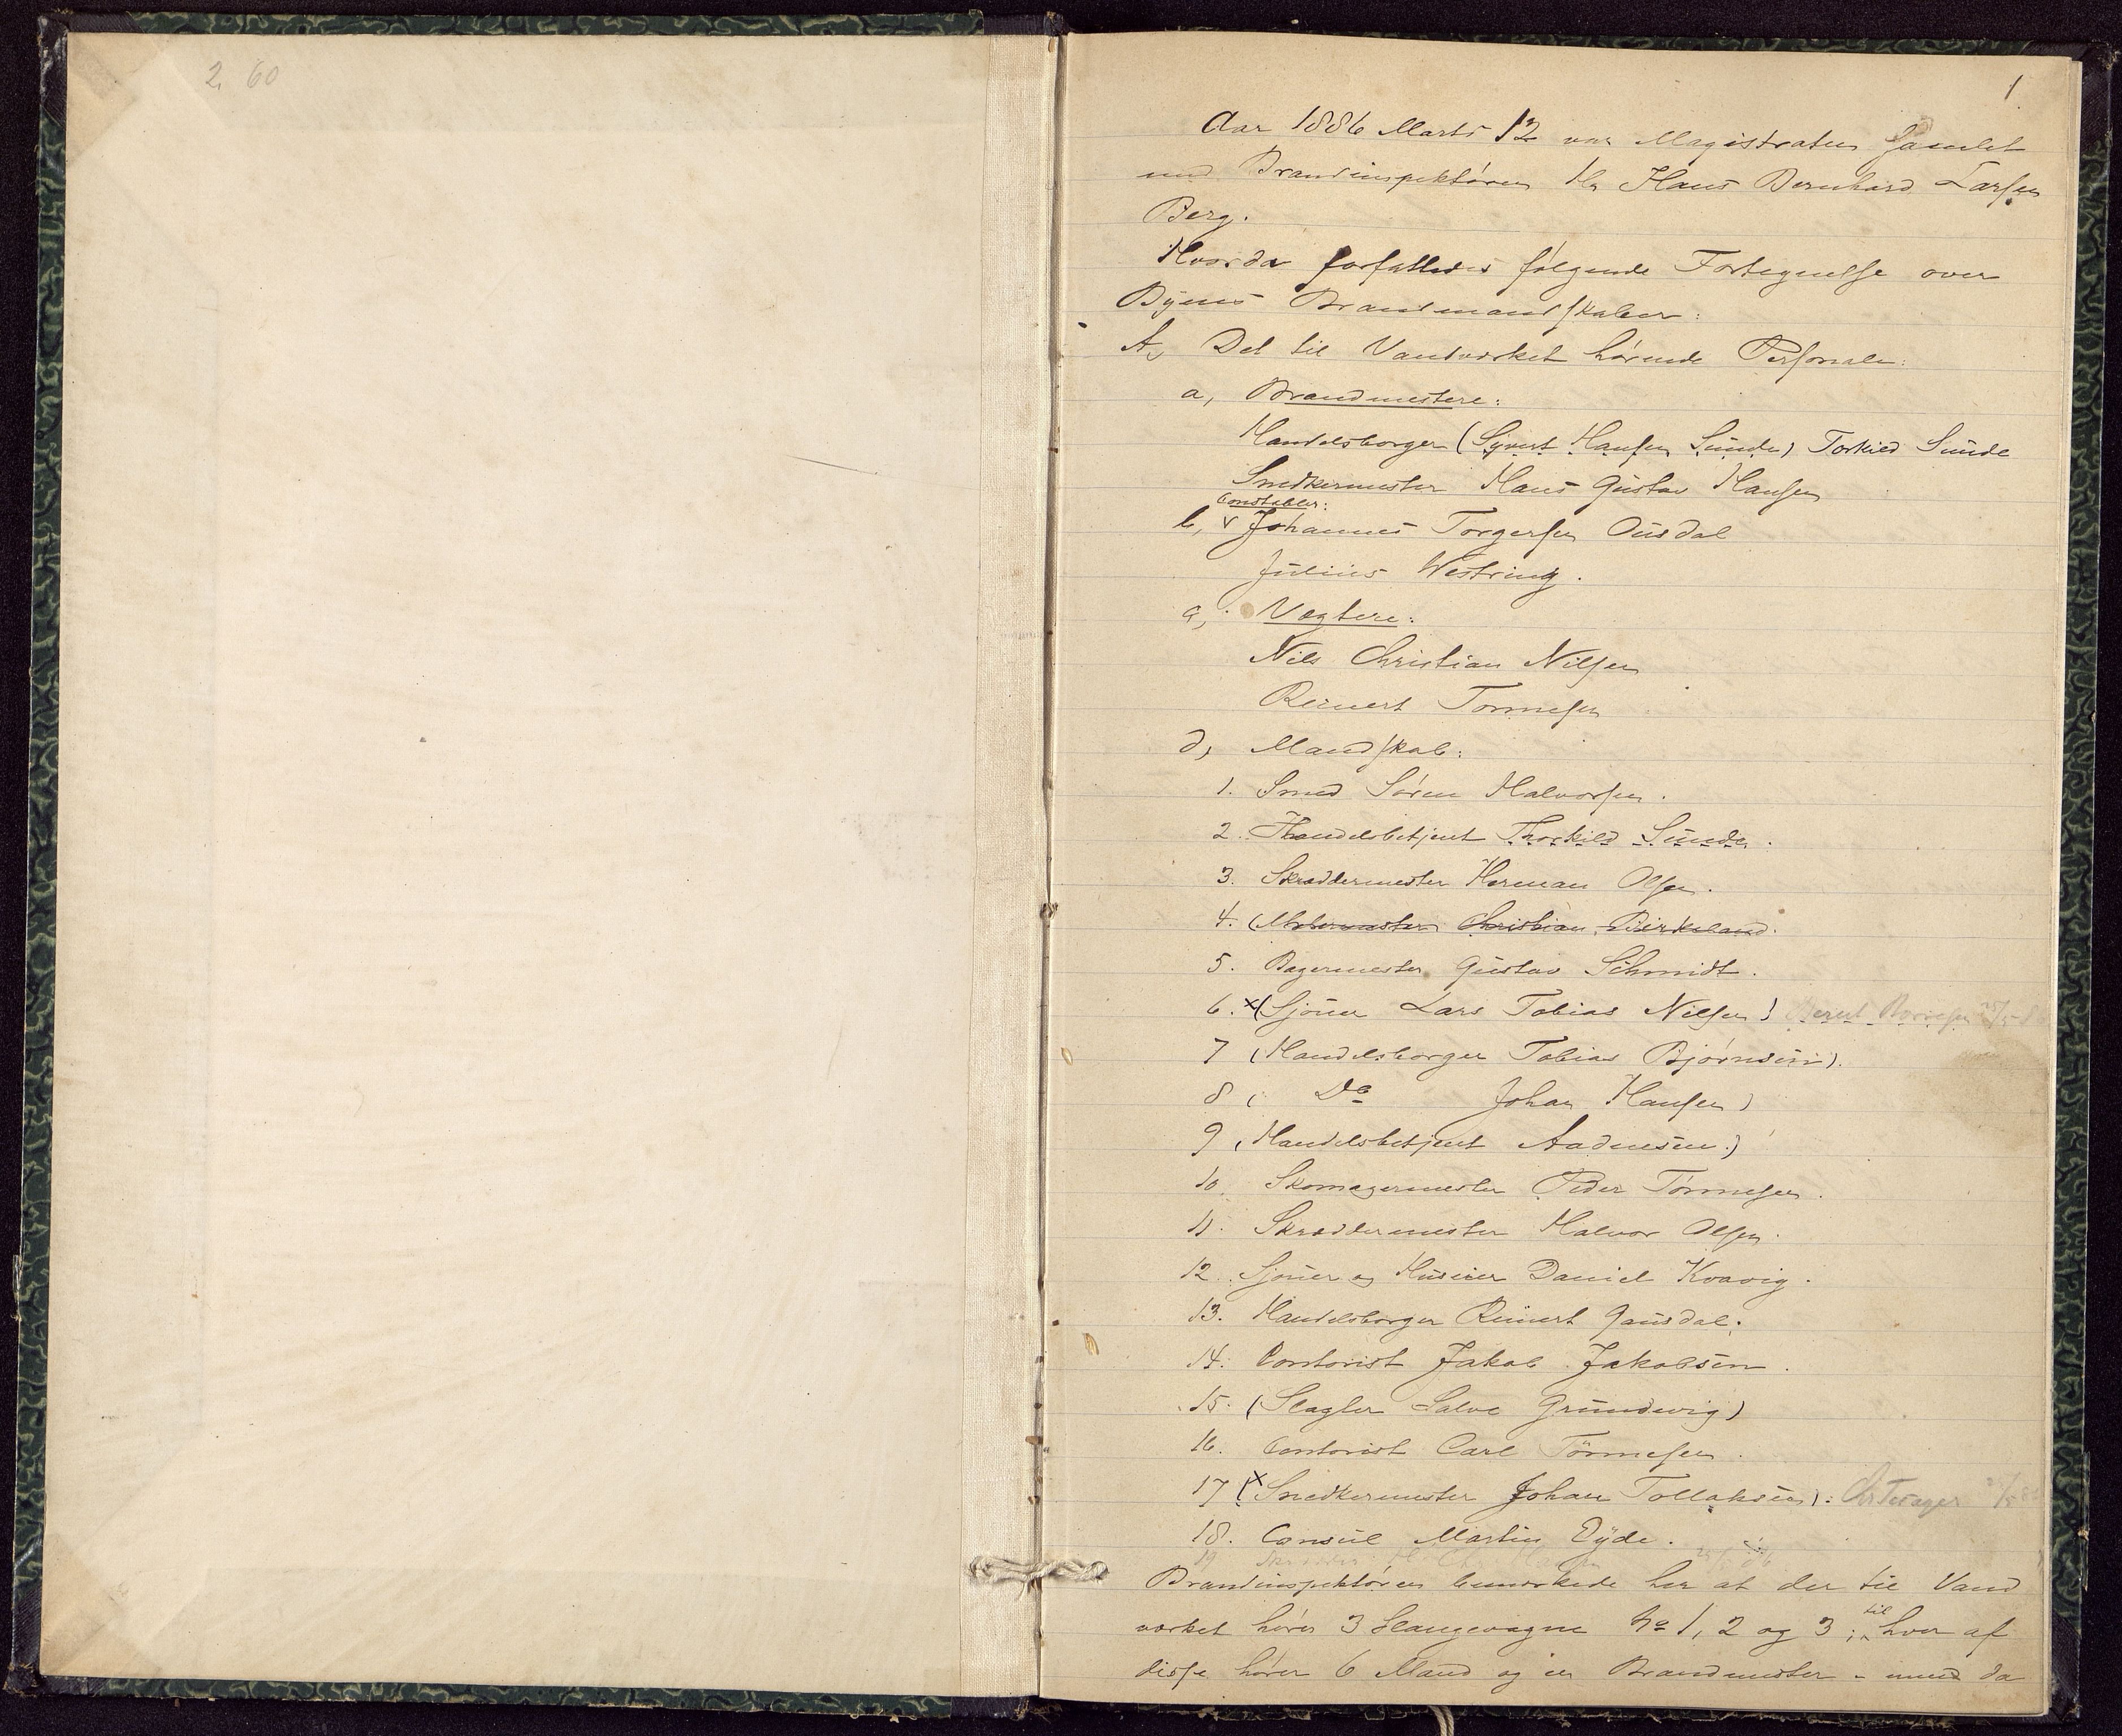 2. 60
1
Aar 1886 Marts 12 var Magistraten samlet
med Brandinspektøren Hr Hans Bernhard Larsen
Berg.
Hvorda forfattedes følgende Fortegnelse over
Byens Brandmandskaber:
A, Det til Vandværket hørende Personale:
a, Brandmestere:
Handelsborger (Syvert Hansen Sunde) Torkild Sunde
Snedkermester Hans Gustav Hansen
Constabler:
b, v Johannes Torgersen Ousdal
Julius Westring.
c, Vægtere:
Nils Christian Nilsen
Reinert Tønnesen
d, Mandskab:
1. Smed Søren Halvorsen.
2. Handelsbetjent Thorkild Sunde.
3. Skræddermester Herman Olsen.
4. (Malermester Christian Birkeland.
5. Bagermester Gustav Schmidt.
6. x (Sjouer Lars Tobias Nilsen) Berut
7 (Handelsborger Tobias Bjørnsen).
8 ( Do Johan Hansen)
9 (Handelsbetjent Aadnesen.)
10. Skomagermester Peder Tønnesen.
11. Skræddermester Halvor Olsen.
12. Sjouer og Huseier Daniel Kvavig.
13. Handelsborger Reinert Gausdal.
14. Contorist Jakob Jakobsen.
15. (Slagter Salve Grundevig)
16. Contorist Carl Tönnesen.
17 (x Snedkermester Johan Tollaksen):
18. Consul Martin Eyde.
19
Brandinspektøren bemærkede her at der til Vand
værket hører 3 Slangevogne No 1, 2 og 3; til hver af
disse hører 6 Mand og en Brandmester - mend da